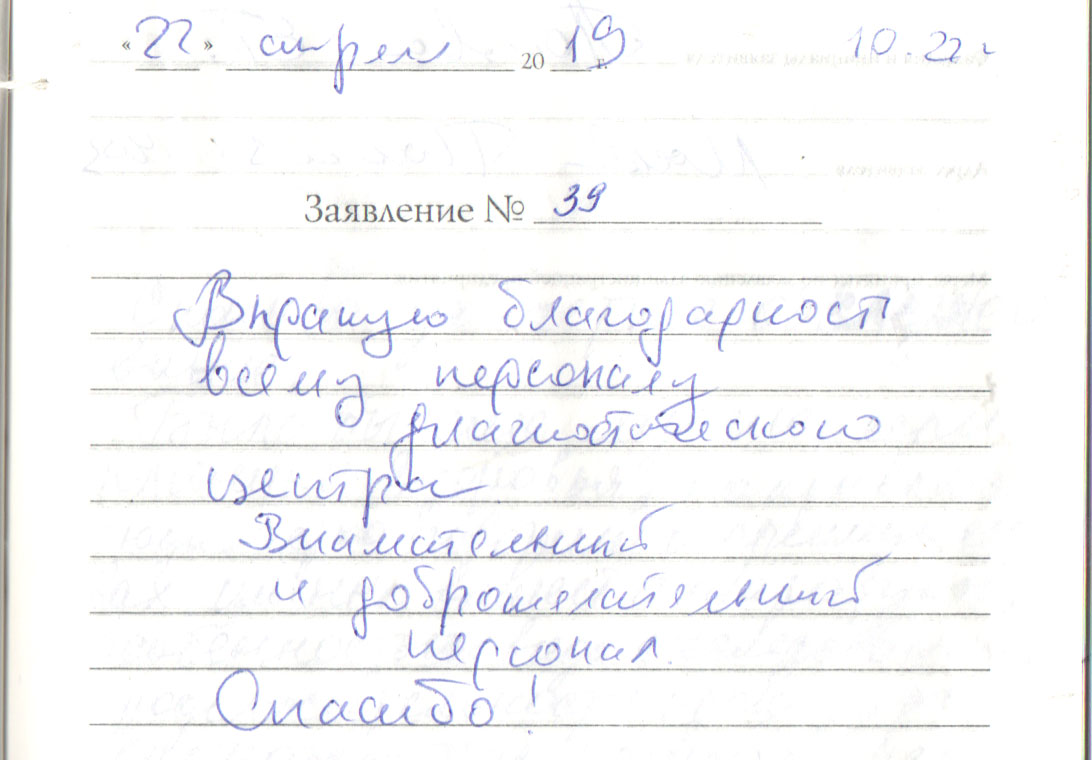 «22» апрел 2019 г. 10.22
Заявление № 39
Выражаю благодарност
всему персоналу
диагностического
центра
Внимательний
и доброжелательний
персонал.
Спасибо!